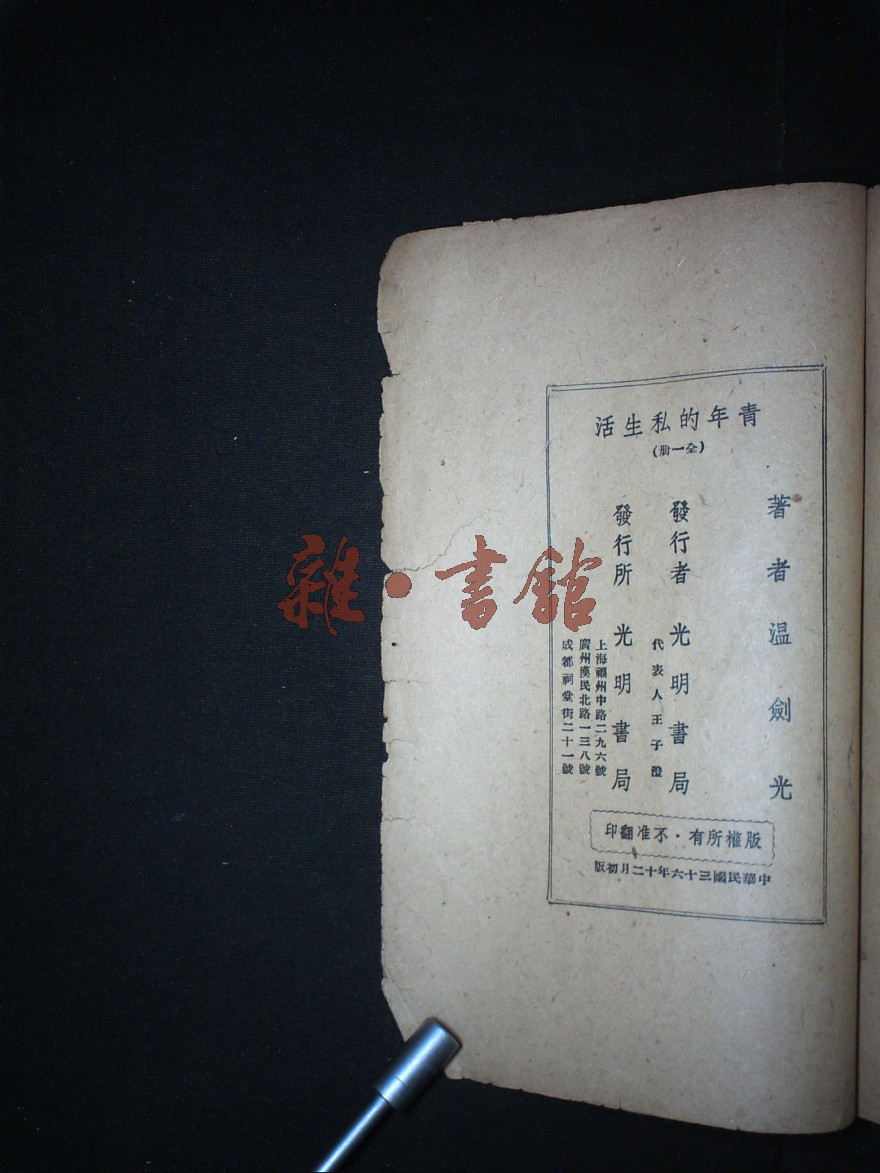 青年的私生活
(全一册)
著者 温劍光
發行者 光明書局
代表人王子澄
發行所 光明書局
上海福州中路二九六號
廣州漢民北路一三八號
成都祠堂街二十一號
版權所有·不准翻印
中華民國三十六年十二月初版
雜·書館